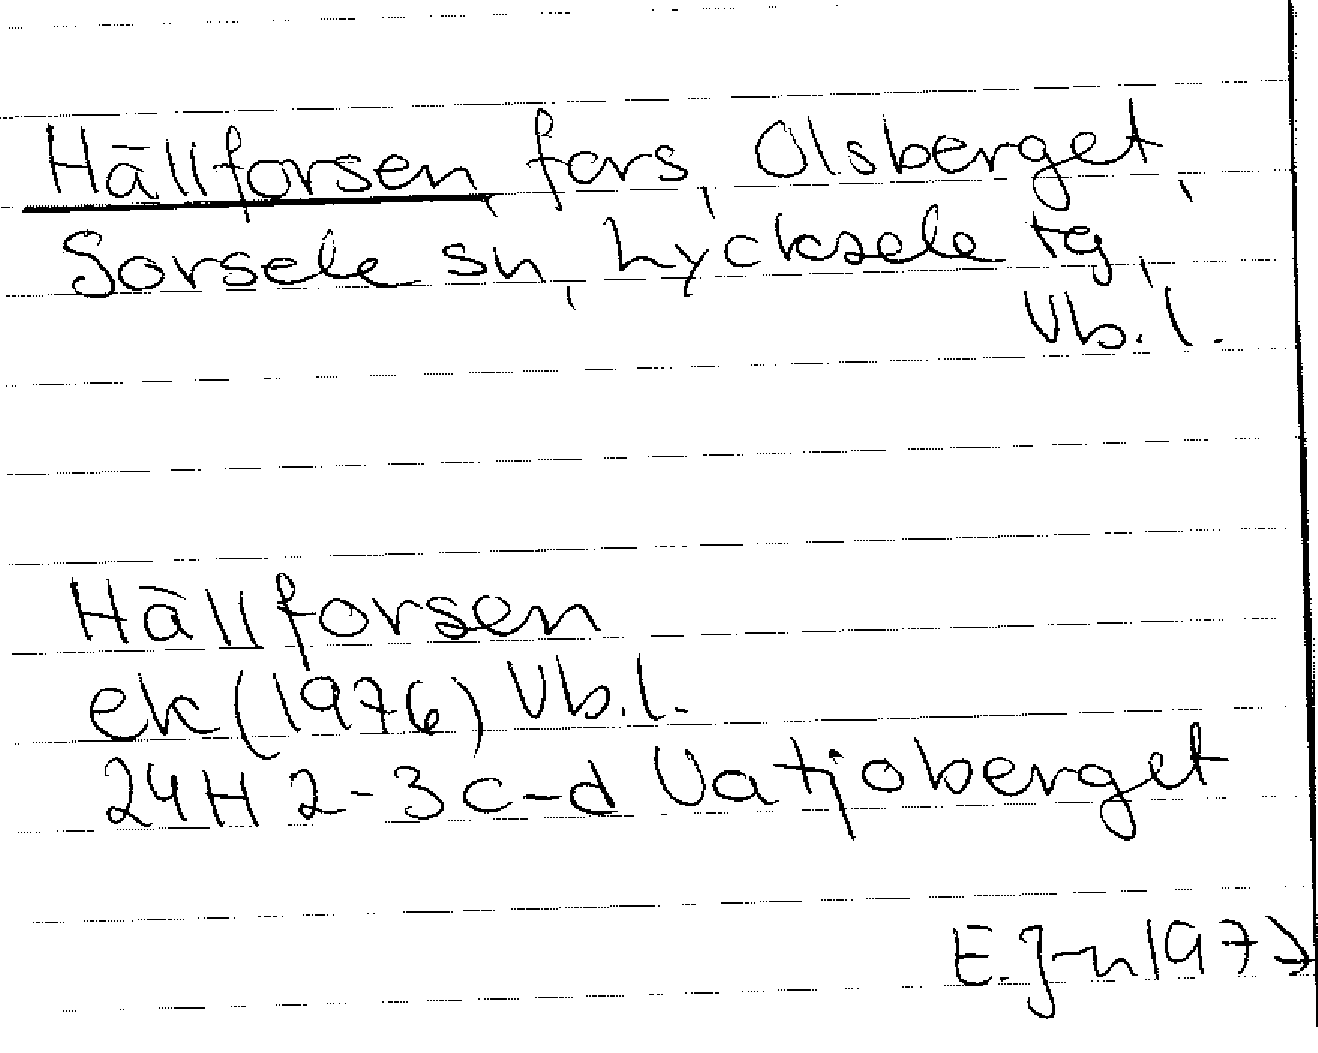 Hällforsen, fors, Olsberget,
Sorsele sn, Lycksele tg,
Vb.l.
Hällforsen
ek (1976) Vb.l.
24H 2-3 c-d Vatjoberget
E.J-n 197